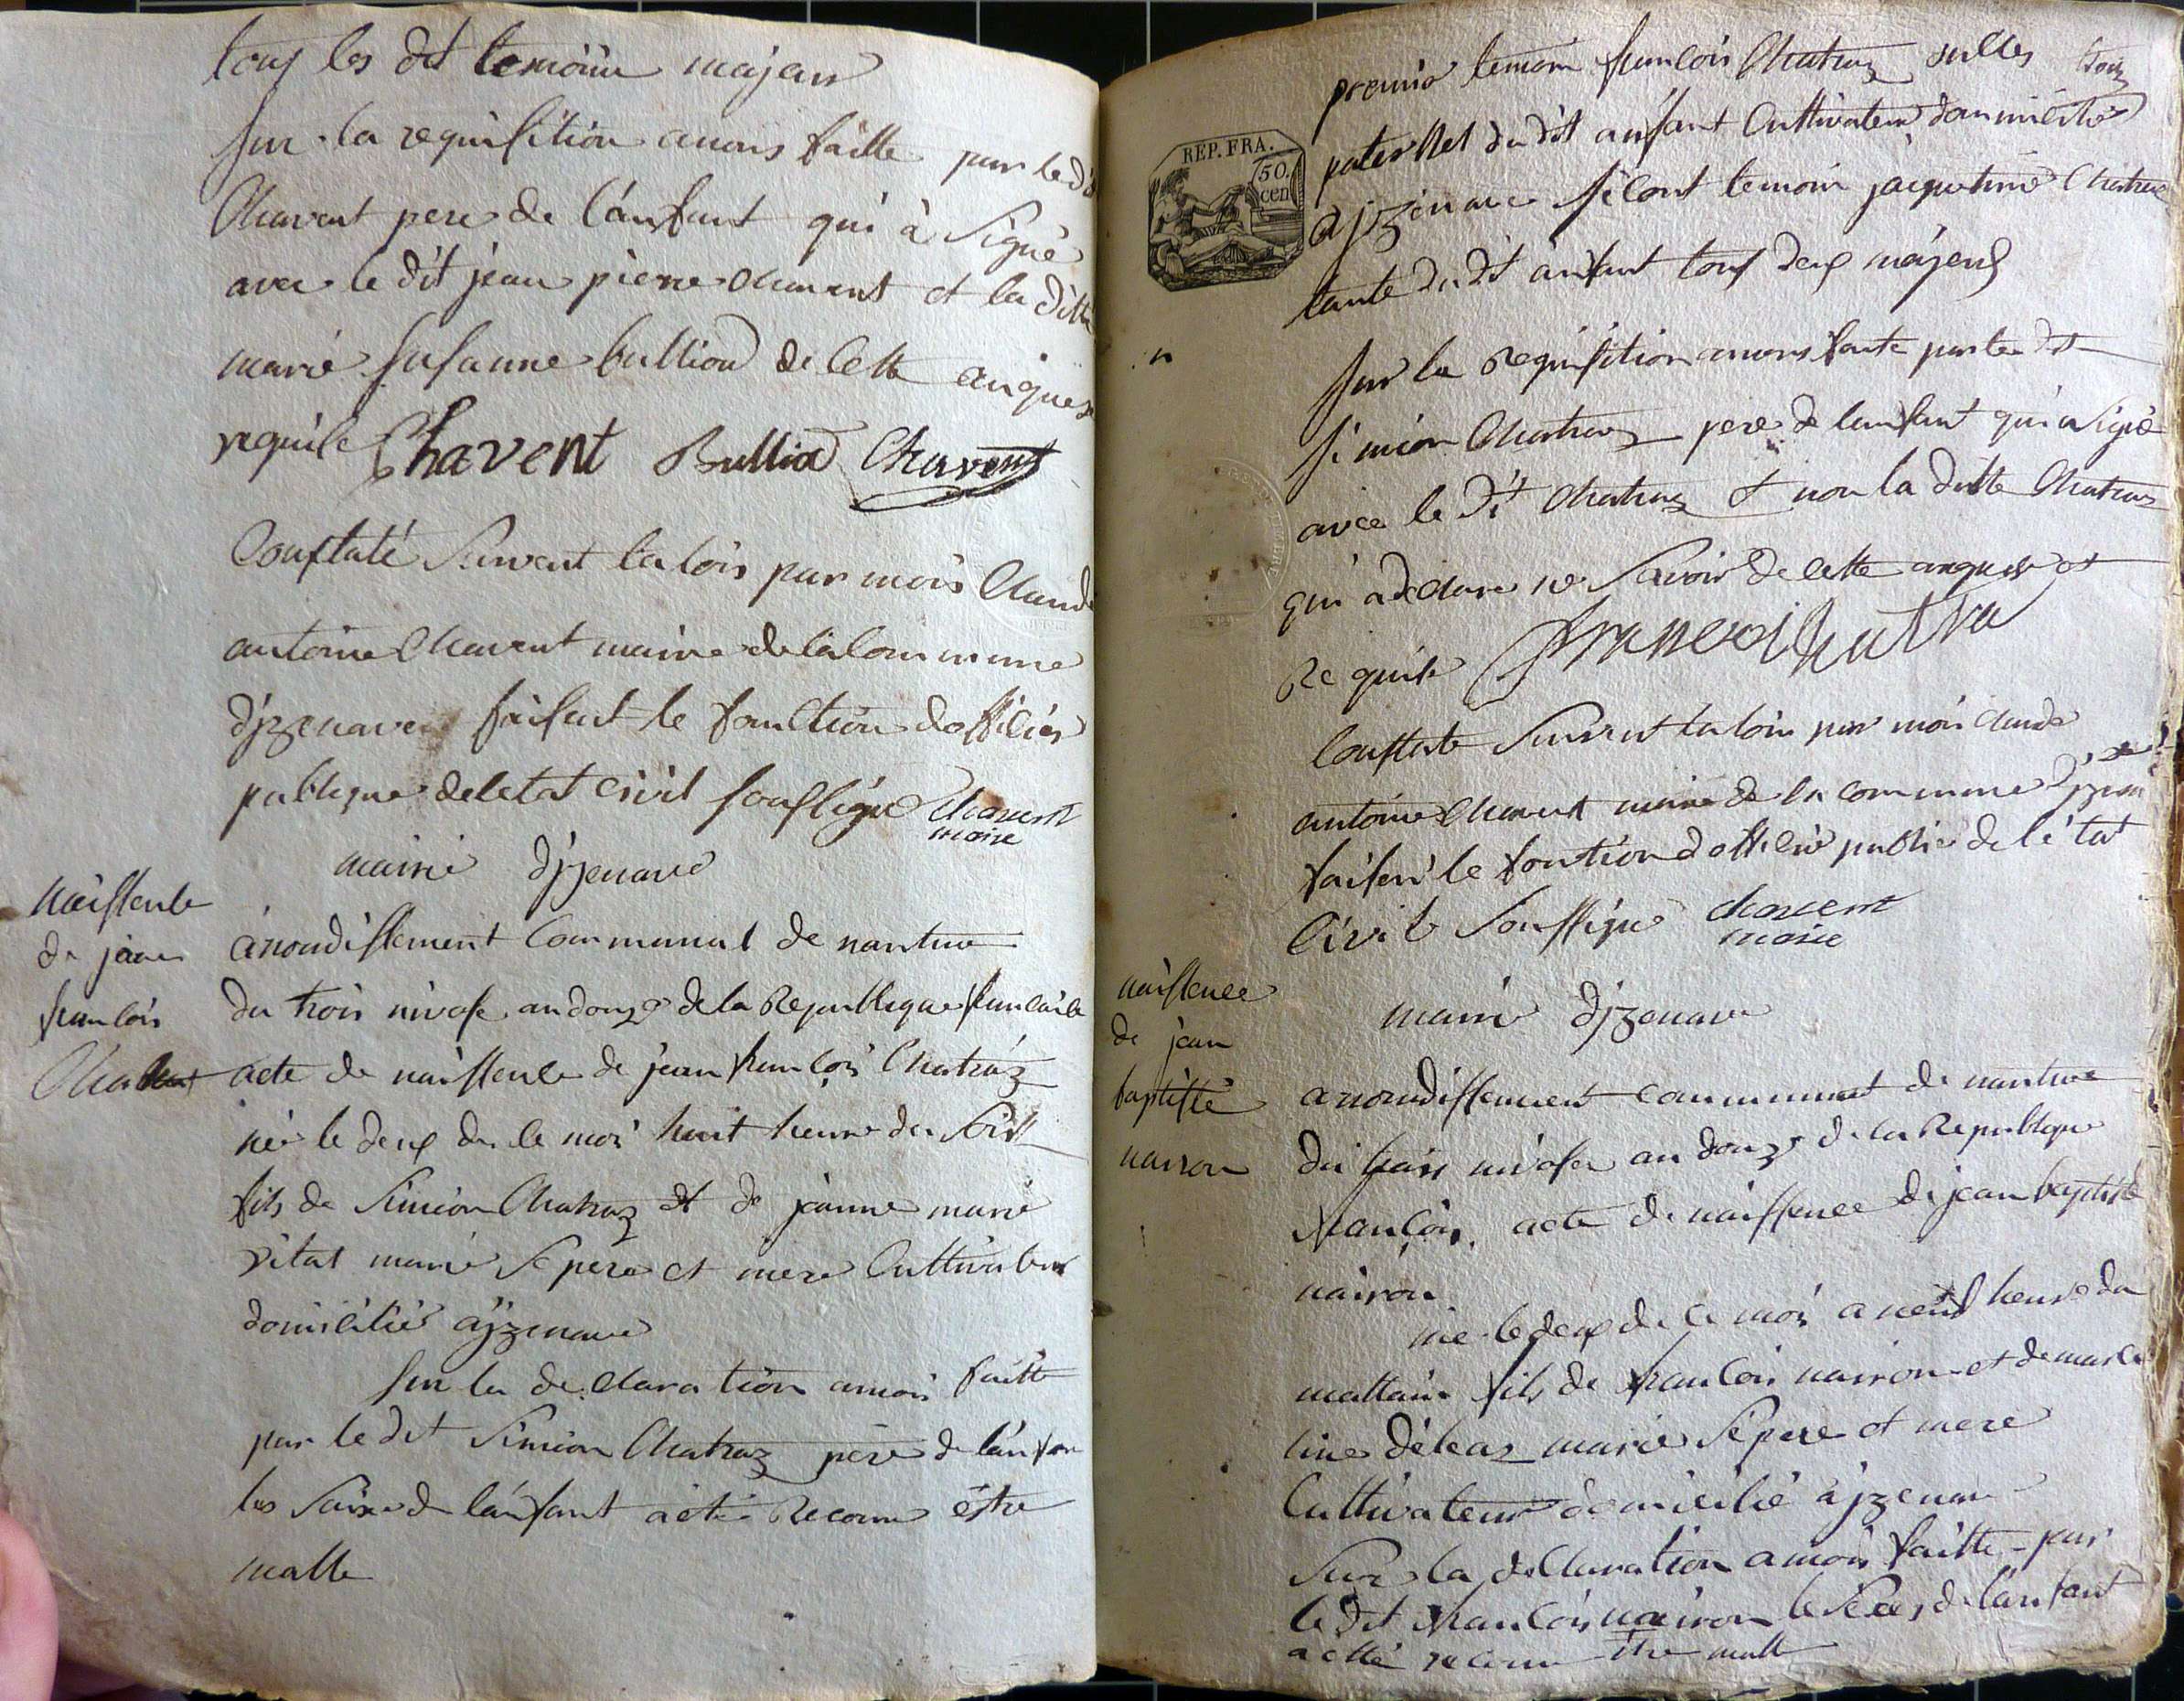 tous les dit temoiin majeur
sur la requisition amois faitte par le dit
Chavent pere de l'anfant qui à signé
avec le dit jean pierre chavent et la ditte
marie susanne bullion de cette anquese
requise Chavent Bulliod Chavent
Constaté suivant la lois par mois Claude
antoine Chavent maire de la Commune
d'jzenave faisant le fonction d'officier
publique de letat civil soussigné chavent
maire
mairie d'jzenave
naissence
de jean
francois
arondissement Communal de nantua
du trois nivose an douze de la Republique francaise
acte de naissence de jean francois Chatraz
né le deux de ce mois huit heure du soir
fils de Simion Chatraz et de jeanne marie
vital marié se pere et mere Cultivateur
domicilié a jzenave
sur la declaration amois faitte
par le dit Simion Chatraz père de l'anfan
les saixe de l'anfant a eté Reconu éstre
malle
REP. FRA.
50.
cen
premié temoin francois Chatraz
paternel du dit anfant Cultivateur domicilié
a jzenave segont temoin jaqueline Chatraz
tante du dit anfant tous deux majeurs
sur la Requisition amois faite par le dit
Simion Chatraz pere de l'anfant qui a signé
avec le dit Chatraz et non la ditte Chatraz
qui a declaré ne savoir de cette anquesse et
Requise francoi Chatra
Constaté suivant la lois par mois claude
antoine chavent maire de la commune d'jzenave
faisant le fontion d'officié public de l'état
Civile soussigné chavent
maire
mairie d'jzenave
naissence
de jean
baptiste
nairon
arrondissement communal de nantua
du trois nivose an douze de la Republique
francois. acte de naissence de jean baptiste
nairon
né le deux de ce mois a neuf heure du
mattain fils de francois nairon et de marce
line déleaz marié se pere et mere
Cultivateur domicilié a jzenave
sur la declaration amois faitte par
le dit francois nairon le sexe de l'anfant
a etté reconu étre malle